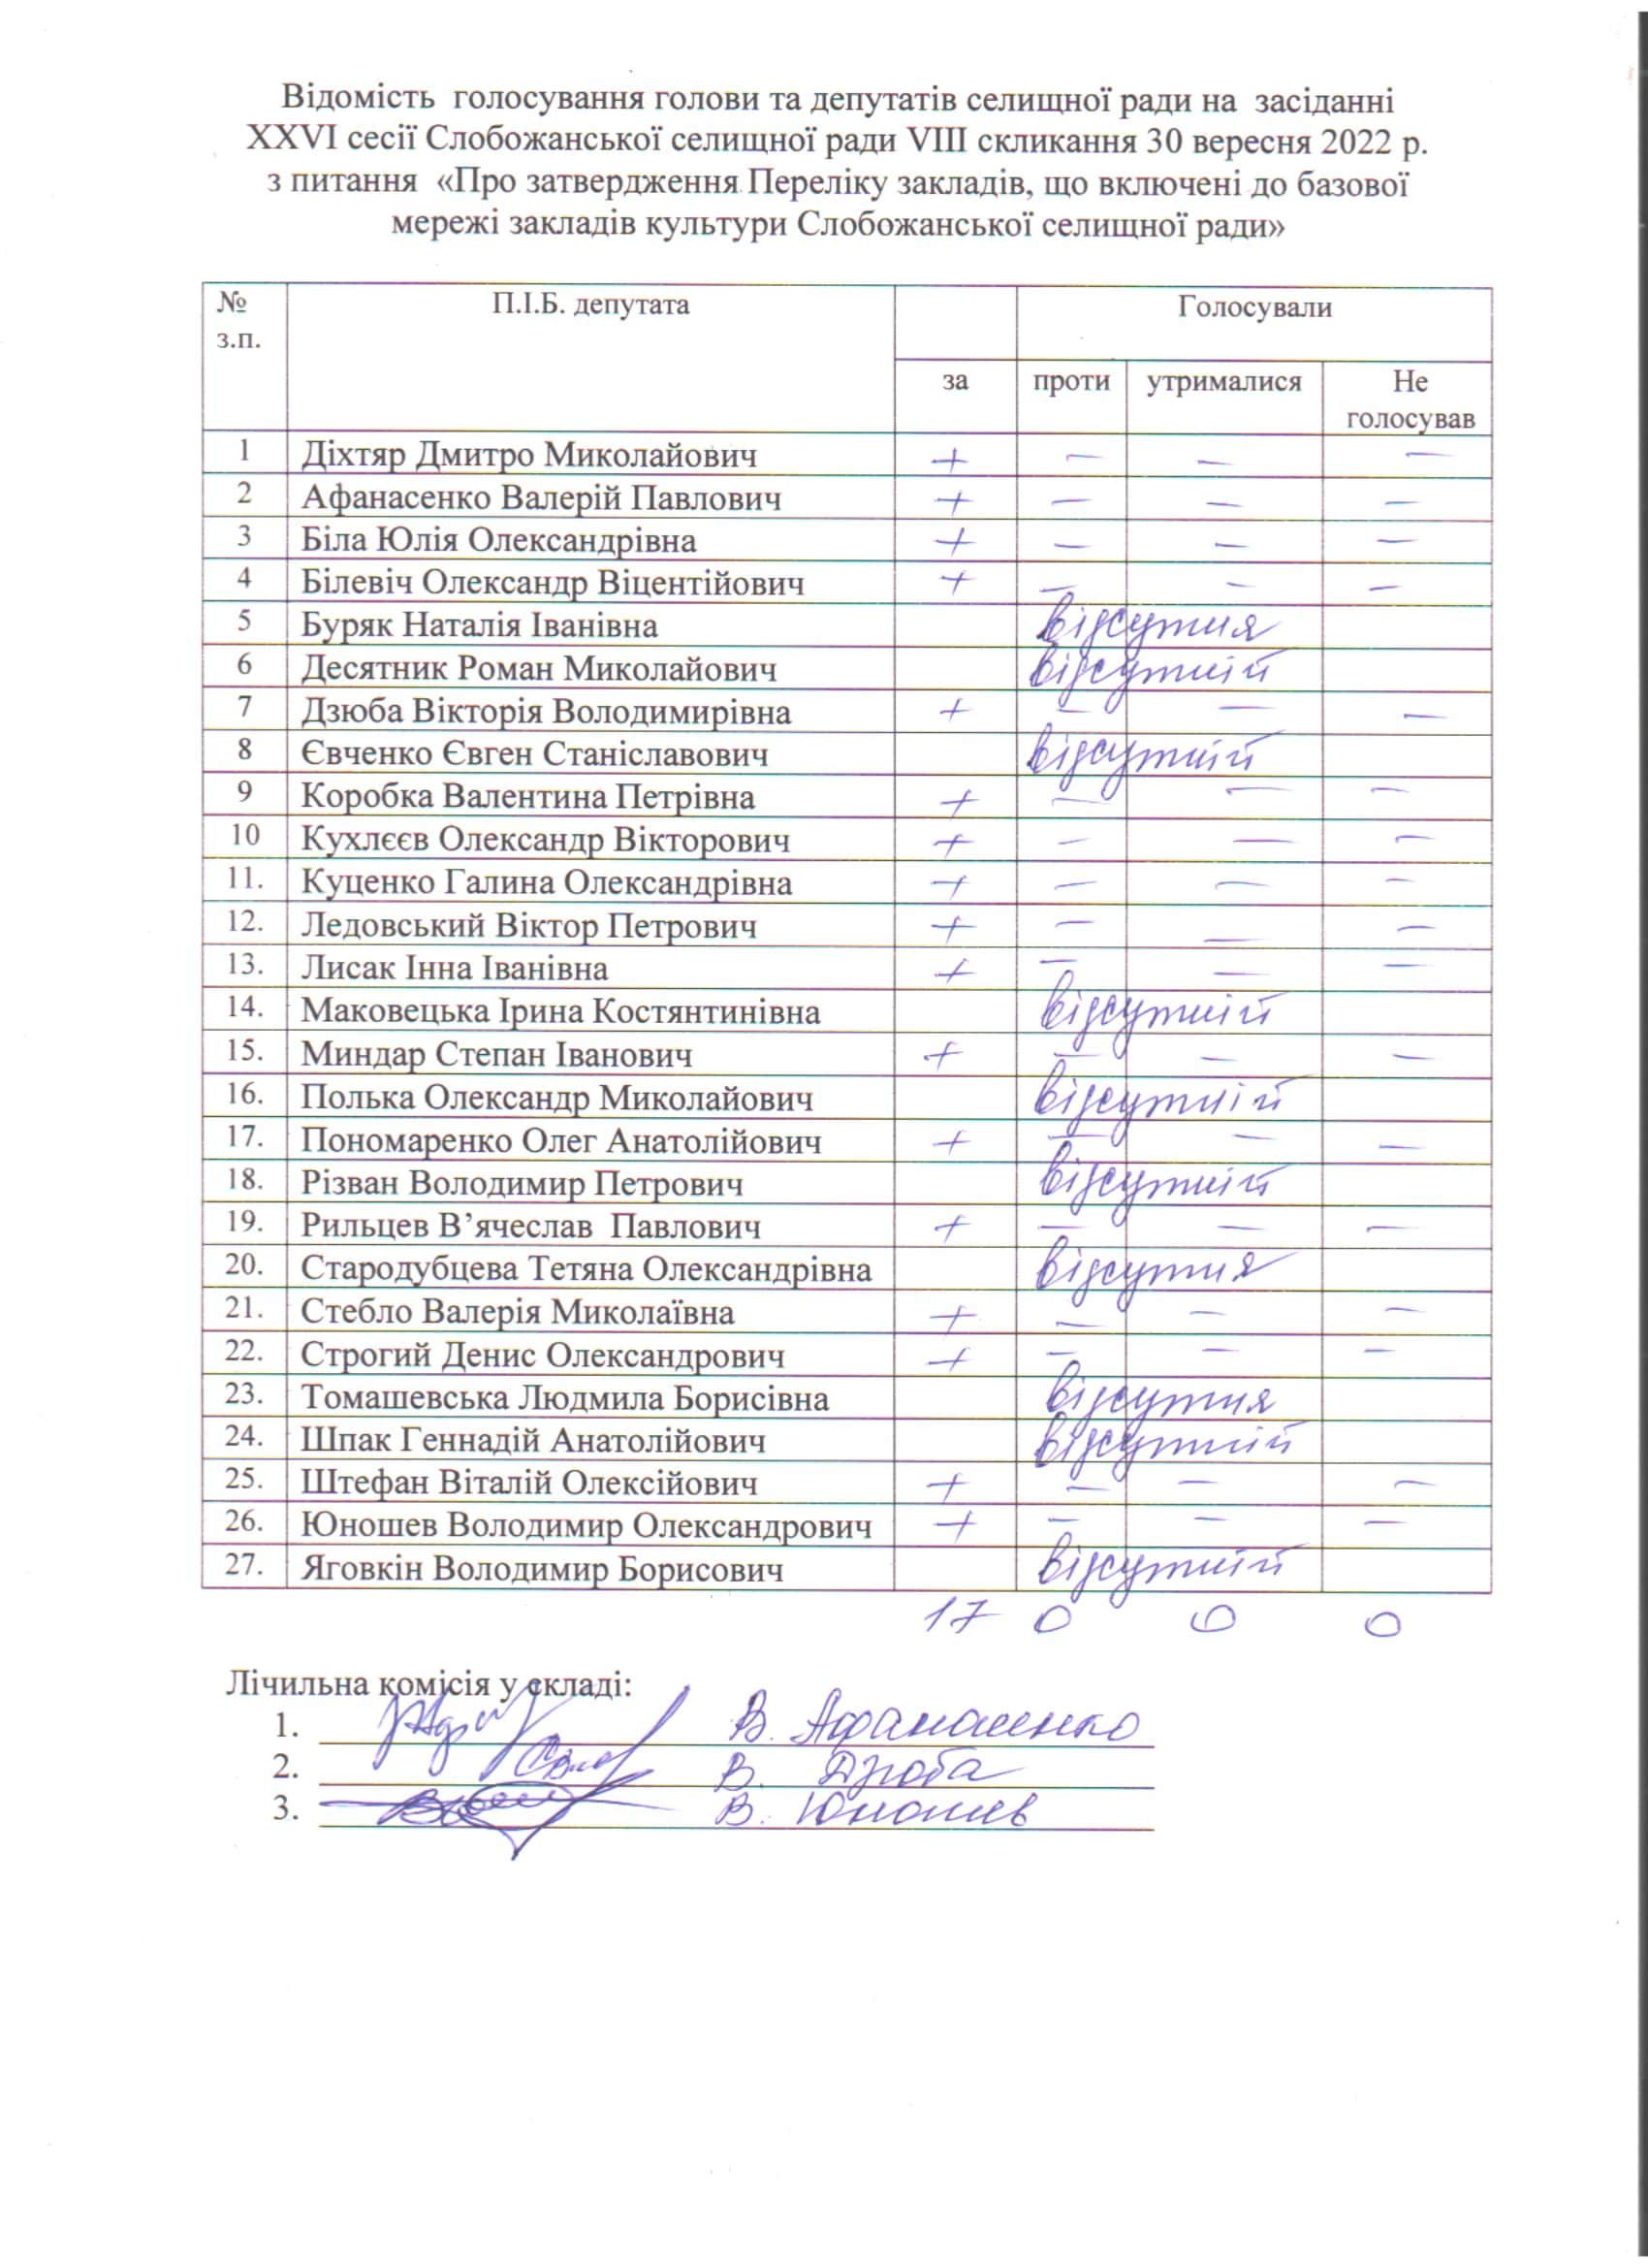 Відомість голосування голови та депутатів селищної ради на засіданні
XXVI сесії Слобожанської селищної ради VIII скликання 30 вересня 2022 р.
з питання «Про затвердження Переліку закладів, що включені до базової
мережі закладів культури Слобожанської селищної ради»
№ П.І.Б. депутата Голосували
з.п.
за проти утрималися Не
голосував
1 Діхтяр Дмитро Миколайович + – – –
2 Афанасенко Валерій Павлович + – – –
3 Біла Юлія Олександрівна + – – –
4 Білевіч Олександр Віцентійович + – – –
5 Буряк Наталія Іванівна відсутня
6 Десятник Роман Миколайович відсутній
7 Дзюба Вікторія Володимирівна + – – –
8 Євченко Євген Станіславович відсутній
9 Коробка Валентина Петрівна + – – –
10 Кухлєєв Олександр Вікторович + – – –
11. Куценко Галина Олександрівна + – – –
12. Ледовський Віктор Петрович + – – –
13. Лисак Інна Іванівна + – – –
14. Маковецька Ірина Костянтинівна відсутній
15. Миндар Степан Іванович + – – –
16. Полька Олександр Миколайович відсутній
17. Пономаренко Олег Анатолійович + – – –
18. Різван Володимир Петрович відсутній
19. Рильцев В’ячеслав Павлович + – – –
20. Стародубцева Тетяна Олександрівна відсутня
21. Стебло Валерія Миколаївна + – – –
22. Строгий Денис Олександрович + – – –
23. Томашевська Людмила Борисівна відсутня
24. Шпак Геннадій Анатолійович відсутній
25. Штефан Віталій Олексійович + – – –
26. Юношев Володимир Олександрович + – – –
27. Яговкін Володимир Борисович відсутній
17 0 0 0
Лічильна комісія у складі:
1. В. Афанасенко
2. В. Дзюба
3. В. Юношев